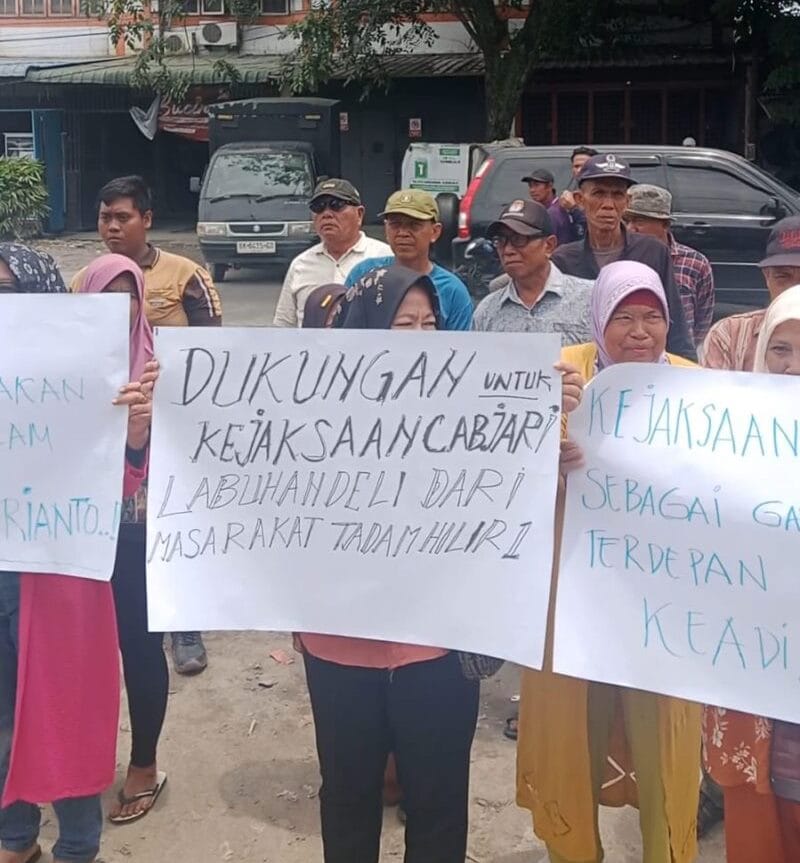 AKAN
LAM
RIANTO..!
DUKUNGAN UNTUK
KEJAKSAAN CABJARI
LABUHAN DELI DARI
MASARAKAT TADAM HILIR 1
KEJAKSAAN
SEBAGAI GA
TERDEPAN
KEADI